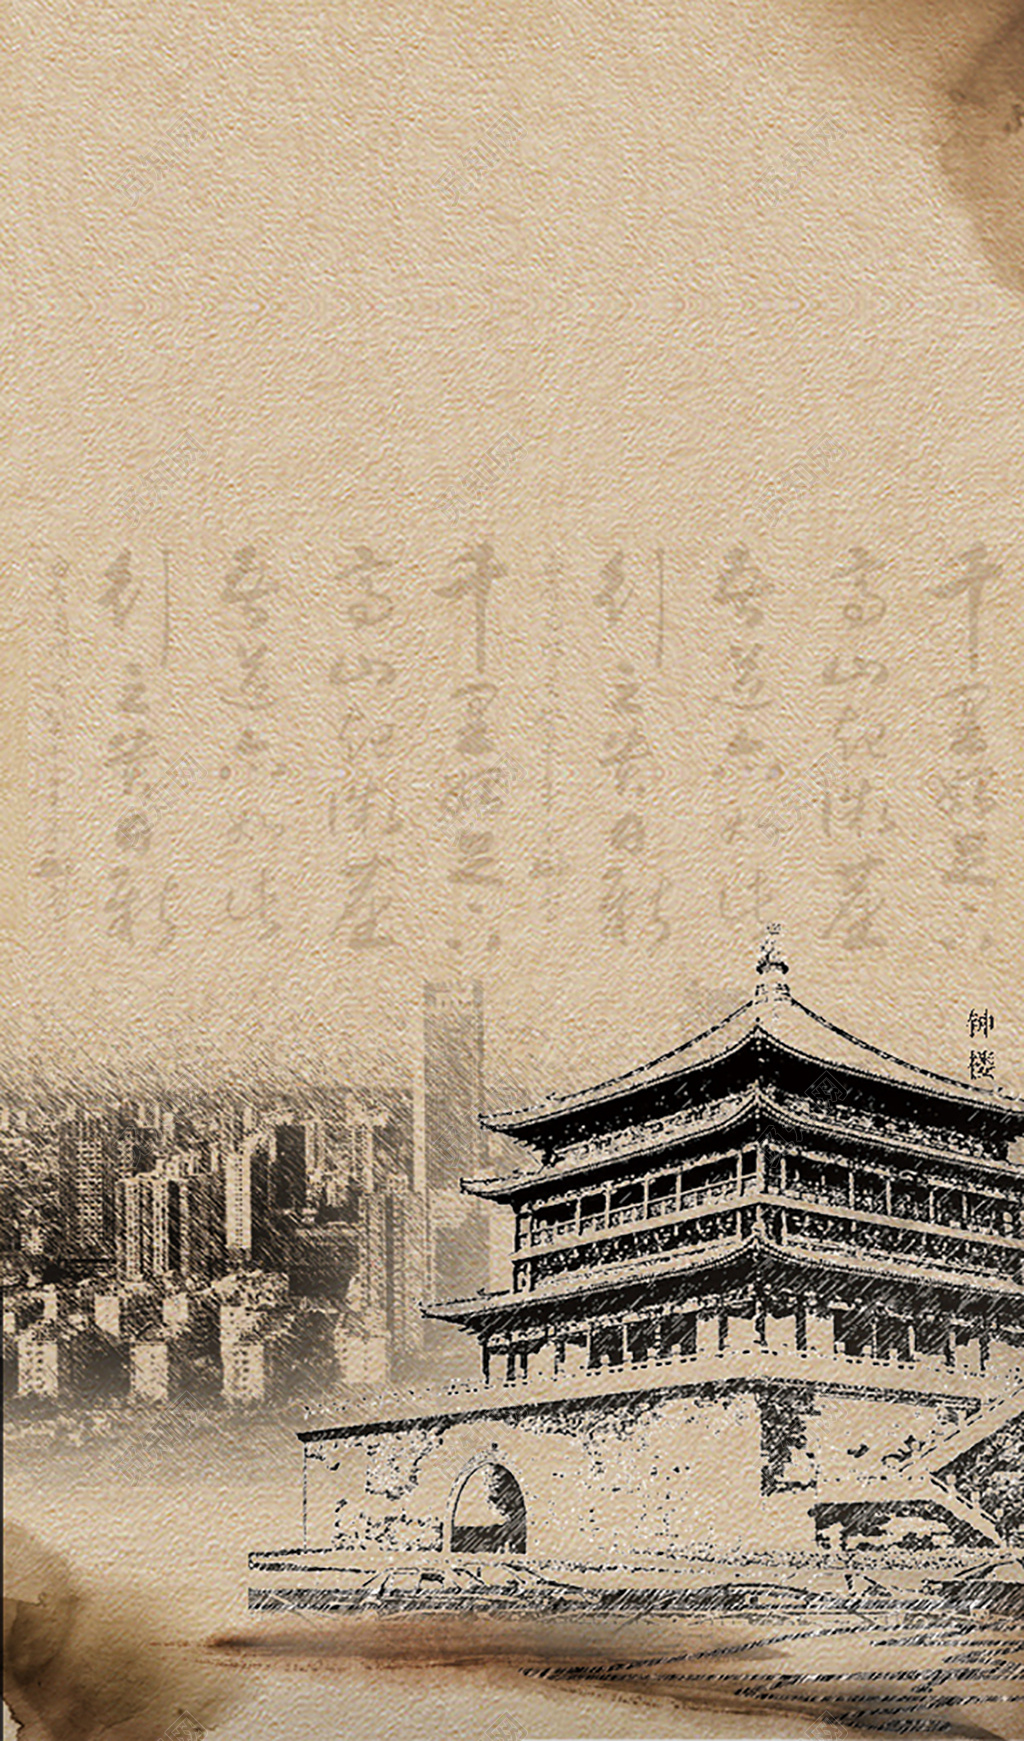 千里始足下
高山起微塵
吾道亦如此
行之貴日新
千里始足下
高山起微塵
吾道亦如此
行之貴日新
钟楼